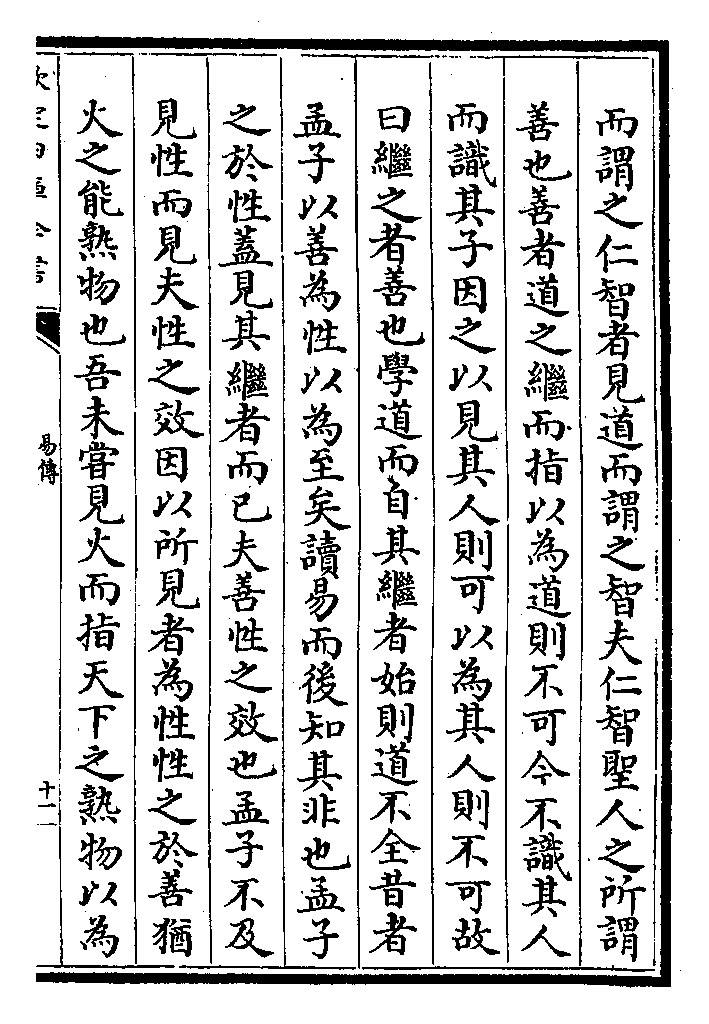 而謂之仁智者見道而謂之智夫仁智聖人之所謂
善也善者道之繼而指以為道則不可今不識其人
而識其子因之以見其人則可以為其人則不可故
曰繼之者善也學道而自其繼者始則道不全昔者
孟子以善為性以為至矣讀易而後知其非也孟子
之於性蓋見其繼者而已夫善性之效也孟子不及
見性而見夫性之效因以所見者為性性之於善猶
火之能熟物也吾未嘗見火而指天下之熟物以為
易傳
十一